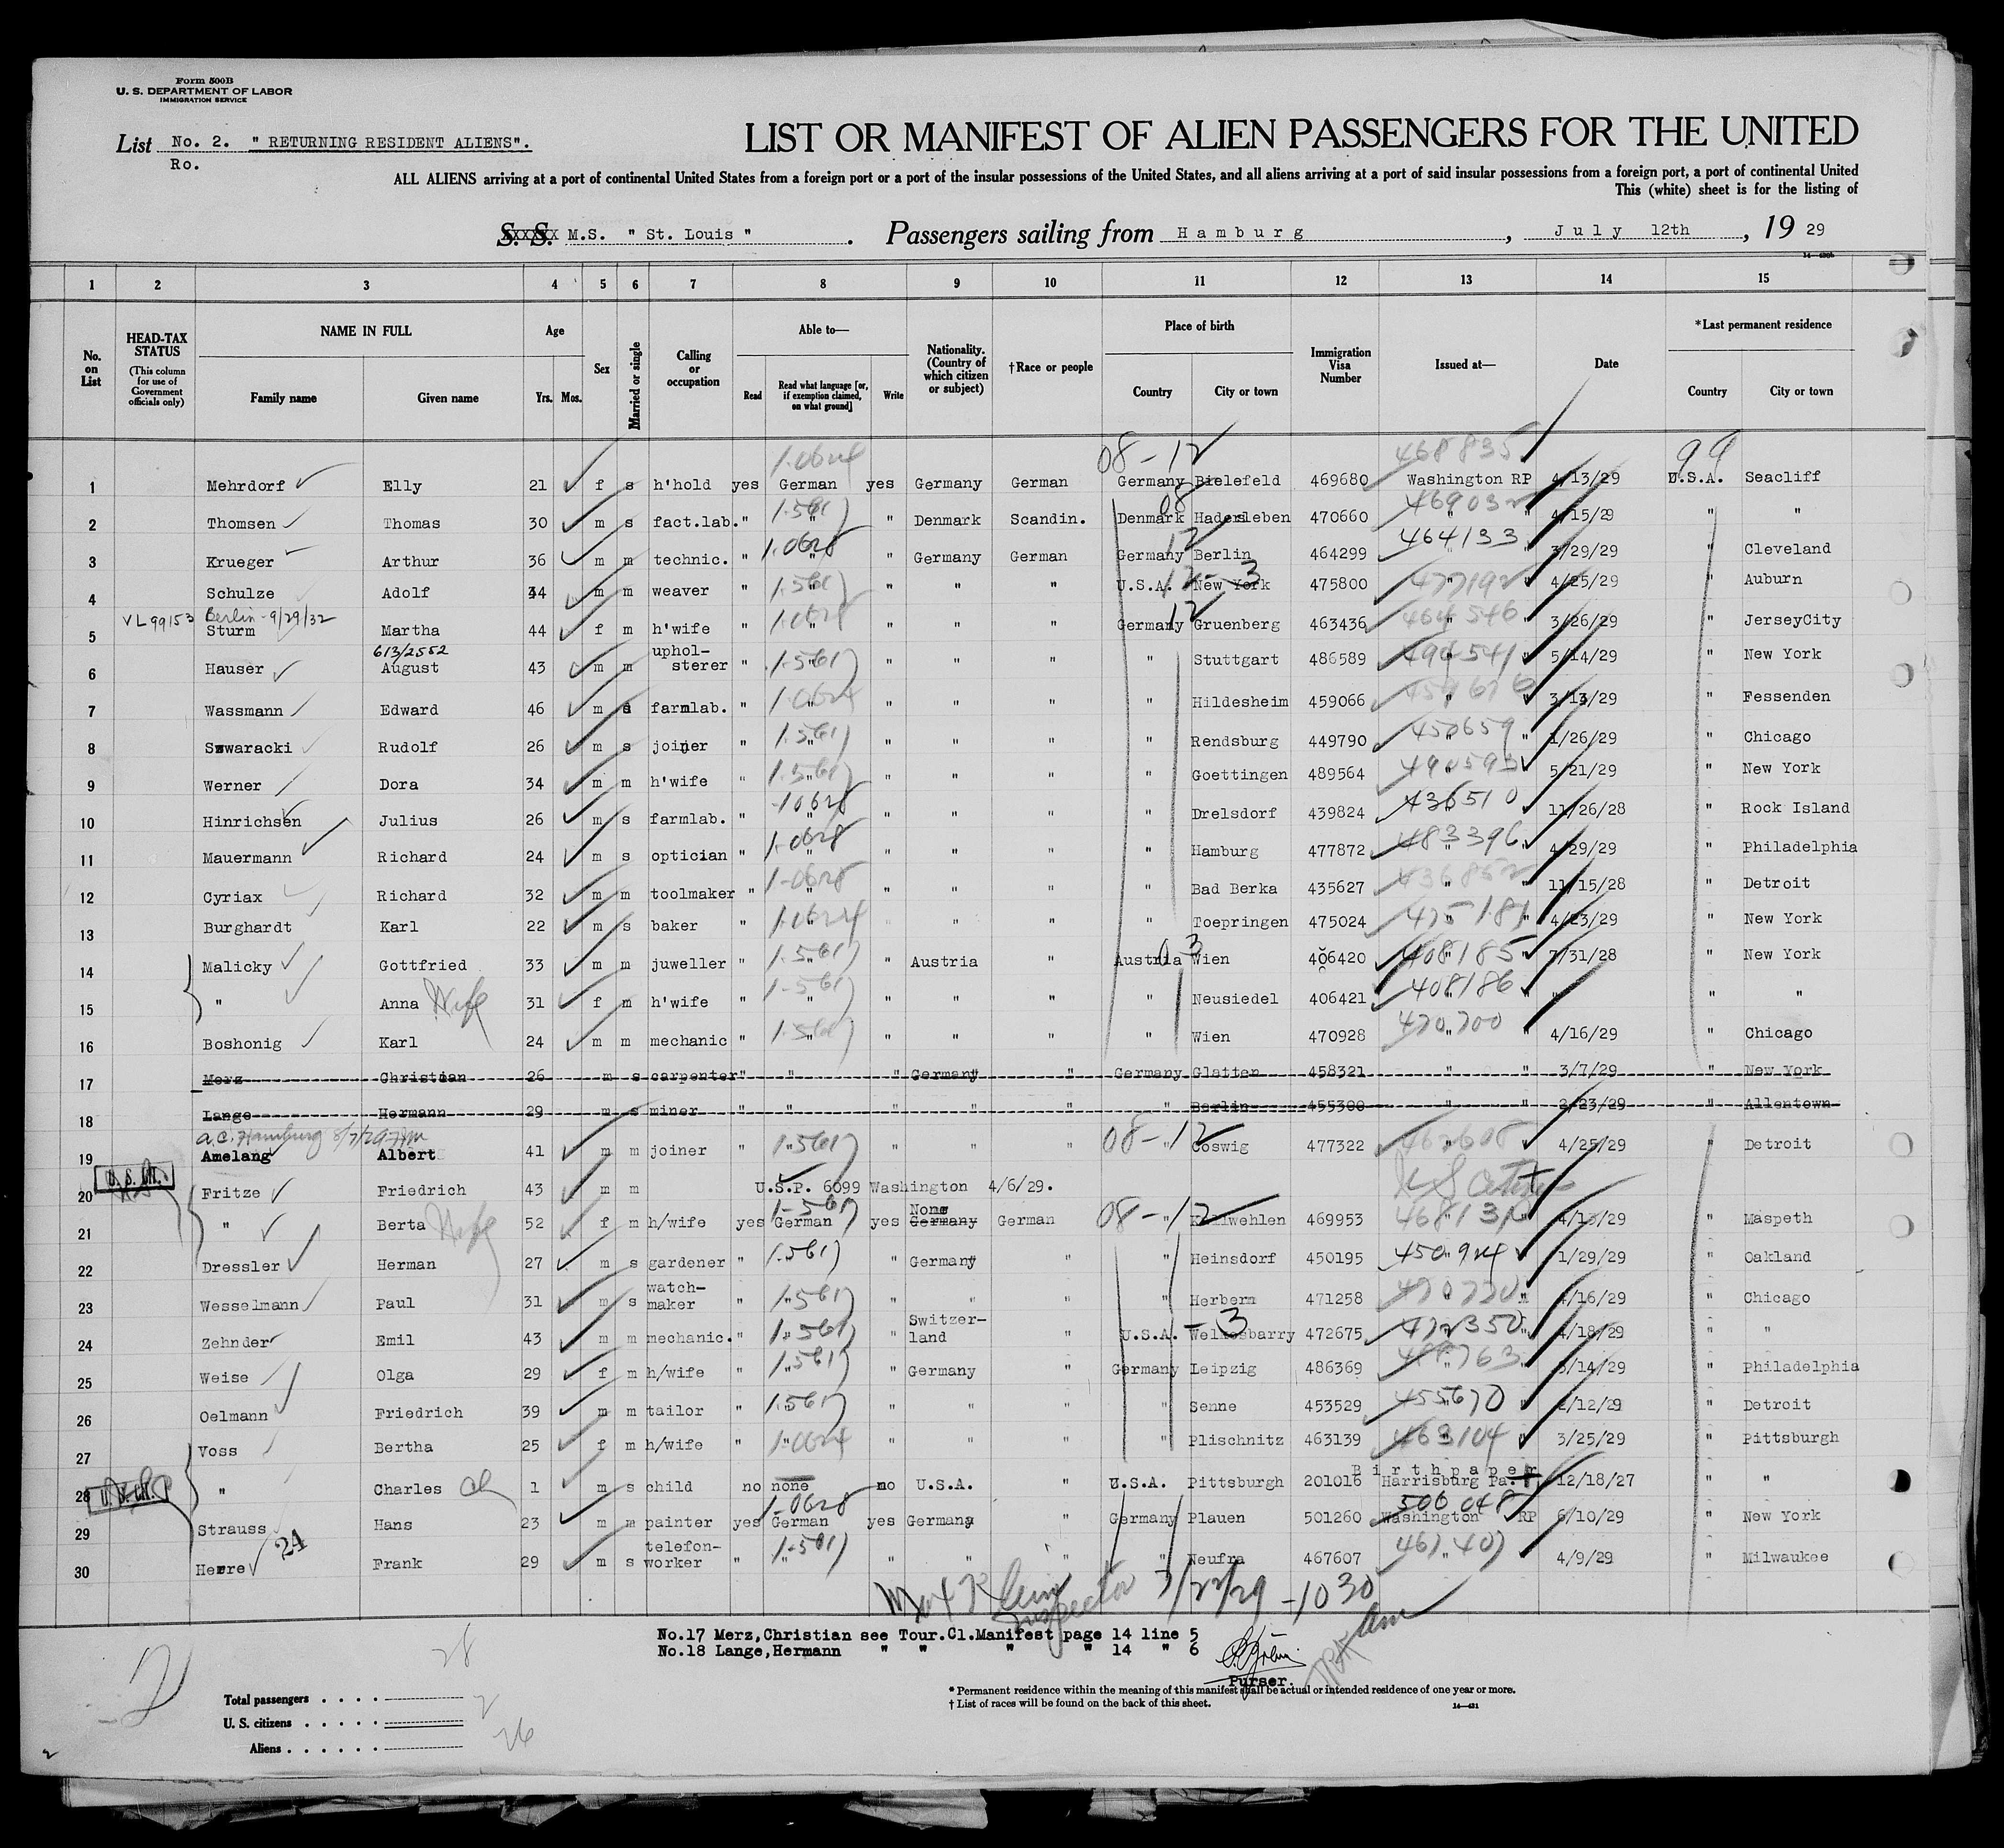 Form 500B
U. S. DEPARTMENT OF LABOR
IMMIGRATION SERVICE
List No. 2. " RETURNING RESIDENT ALIENS".
Ro.
LIST OR MANIFEST OF ALIEN PASSENGERS FOR THE UNITED
ALL ALIENS arriving at a port of continental United States from a foreign port or a port of the insular possessions of the United States, and all aliens arriving at a port of said insular possessions from a foreign port, a port of continental United
This (white) sheet is for the listing of
S. S. M.S. " St. Louis " . Passengers sailing from Hamburg , July 12th , 19 29
1 2 3 4 5 6 7 8 9 10 11 12 13 14 15
No. on List
HEAD-TAX STATUS (This column for use of Government officials only)
NAME IN FULL Family name Given name
Age Yrs. Mos.
Sex
Married or single
Calling or occupation
Able to— Read Read what language [or, if exemption claimed, on what ground] Write
Nationality. (Country of which citizen or subject)
†Race or people
Place of birth Country City or town
Immigration Visa Number
Issued at—
Date
*Last permanent residence Country City or town
08-12 468835 99
1 Mehrdorf Elly 21 f s h'hold yes German yes Germany German Germany Bielefeld 469680 Washington RP 4/13/29 U.S.A. Seacliff
2 Thomsen Thomas 30 m s fact.lab. " " " Denmark Scandin. Denmark Hadersleben 470660 " " 4/15/29 " "
464133
3 Krueger Arthur 36 m m technic. " " " Germany German Germany Berlin 464299 " " 3/29/29 " Cleveland
4 Schulze Adolf 34 m m weaver " " " " " U.S.A. New York 475800 " " 4/25/29 " Auburn
VL99153 Berlin-9/29/32
5 Sturm Martha 44 f m h'wife " " " " " Germany Gruenberg 463436 " " 3/26/29 " JerseyCity
613/2552
6 Hauser August 43 m m uphol-sterer " " " " " " Stuttgart 486589 " " 5/14/29 " New York
7 Wassmann Edward 46 m farmlab. " " " " " " Hildesheim 459066 " " 3/13/29 " Fessenden
450659
8 Swaracki Rudolf 26 m s joiner " " " " " " Rendsburg 449790 " " 1/26/29 " Chicago
9 Werner Dora 34 m m h'wife " " " " " " Goettingen 489564 " " 5/21/29 " New York
436510
10 Hinrichsen Julius 26 m s farmlab. " " " " " " Drelsdorf 439824 " " 11/26/28 " Rock Island
483396
11 Mauermann Richard 24 m s optician " " " " " " Hamburg 477872 " " 4/29/29 " Philadelphia
12 Cyriax Richard 32 m m toolmaker " " " " " " Bad Berka 435627 " " 11/15/28 " Detroit
475181
13 Burghardt Karl 22 m s baker " " " " " " Toepringen 475024 " " 4/23/29 " New York
408185
14 Malicky Gottfried 33 m m juweller " " " Austria " Austria Wien 406420 " " 7/31/28 " New York
408186
15 " Anna Wife 31 f m h'wife " " " " " " Neusiedel 406421 " " " " "
470700
16 Boshonig Karl 24 m m mechanic " " " " " " Wien 470928 " " 4/16/29 " Chicago
17 Merz Christian 26 m s carpenter " " " Germany " Germany Glatten 458321 " " 3/7/29 " New York
18 Lange Hermann 29 m s miner " " " " " " Berlin 455300 " " 2/23/29 " Allentown
08-12
19 Amelang Albert 41 m m joiner " " " " " " Coswig 477322 " " 4/25/29 " Detroit
20 Fritze Friedrich 43 m m U.S.P. 6099 Washington 4/6/29.
08-12
21 " Berta Wife 52 f m h/wife yes German yes None Germany German " 469953 " " 4/13/29 " Maspeth
450924
22 Dressler Herman 27 m s gardener " " " Germany " " Heinsdorf 450195 " " 1/29/29 " Oakland
23 Wesselmann Paul 31 m s watch-maker " " " " " " Herbern 471258 " " 4/16/29 " Chicago
472350
24 Zehnder Emil 43 m m mechanic. " " " Switzer-land " U.S.A. 472675 " " 4/18/29 " "
25 Weise Olga 29 f m h/wife " " " Germany " Germany Leipzig 486369 " " 5/14/29 " Philadelphia
455670
26 Oelmann Friedrich 39 m m tailor " " " " " " Senne 453529 " " 2/12/29 " Detroit
463104
27 Voss Bertha 25 f m h/wife " " " " " " Plischnitz 463139 " " 3/25/29 " Pittsburgh
Birthpaper
28 " Charles Ch 1 m s child no none no U.S.A. " U.S.A. Pittsburgh 201016 Harrisburg Pa. 12/18/27 " "
506048
29 Strauss Hans 23 m m painter yes German yes Germany " Germany Plauen 501260 Washington RP 6/10/29 " New York
24
30 Herre Frank 29 m s telefon-worker " " " " " " Neufra 467607 " " 4/9/29 " Milwaukee
Inspector 7/22/29 -1030 am
No.17 Merz,Christian see Tour.Cl.Manifest page 14 line 5
No.18 Lange,Hermann " " " " 14 " 6
Purser.
28
Total passengers . . . .
2
U. S. citizens . . . . .
26
Aliens . . . . . .
* Permanent residence within the meaning of this manifest shall be actual or intended residence of one year or more.
† List of races will be found on the back of this sheet.